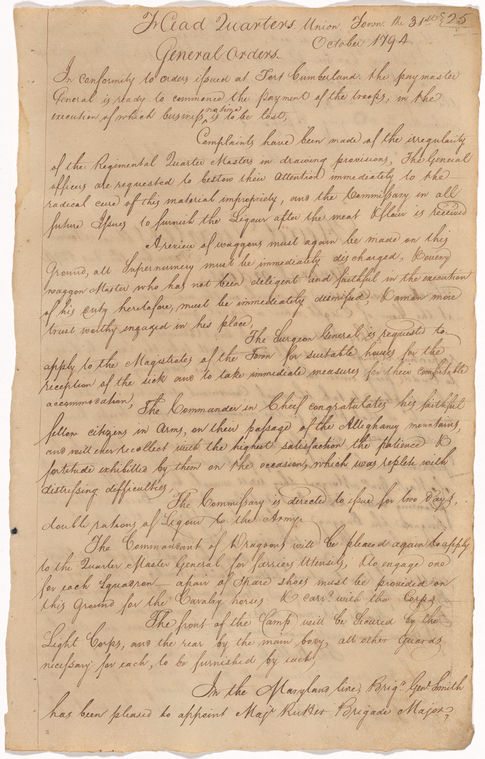 Head Quarters Union Town the 31st 25
October 1794
General Orders
In conformity to orders issued at Fort Cumberland. the paymaster
General is ready to commence the payment of the troops, in the
execution of which business, no time is to be lost,
Complaints have been made of the irregularity
of the Regimental Quarter Masters in drawing provisions, The General
officers are requested to bestow their attention immediately to the
radical cure of this material impropriety, and the Commissary in all
future Issues to furnish the Liquor after the meat & flour is received
A review of waggons must again be made on this
Ground, all Supernumery must be immediately discharged, & every
waggon Master who has not been deligent and faithful in the execution
of his duty heretofore, must be immediately dismissed, & a man more
trust worthy engaged in his place,
The Surgeon General is requested to
apply to the Magistrates of the Town for suitable houses for the
reception of the sick and to take immediate measures for their comfortable
accommodation,
The Commander in Chief congratulates his faithful
fellow citizens in Arms, on their passage of the Alleghany mountains,
and will ever recollect with the highest satisfaction the patience &
fortitude exhibited by them on the occasion, which was replete with
distressing difficulties,
The Commissary is directed to issue for two days
double rations of Liquor to the Army
The Commandant of Dragoons will be pleased again to apply
to the Quarter Master General for farriers Utensils, & to engage one
for each Squadron — a pair of Spare Shoes must be provided on
this Ground for the Cavalry horses & carrd with the Corps
The front of the Camp will be secured by the
Light Corps, and the rear by the main body, all other Guards
necessary for each, to be furnished by each
In the Maryland line, Brigr Genl Smith
has been pleased to appoint Majr Rutter Brigade Major,